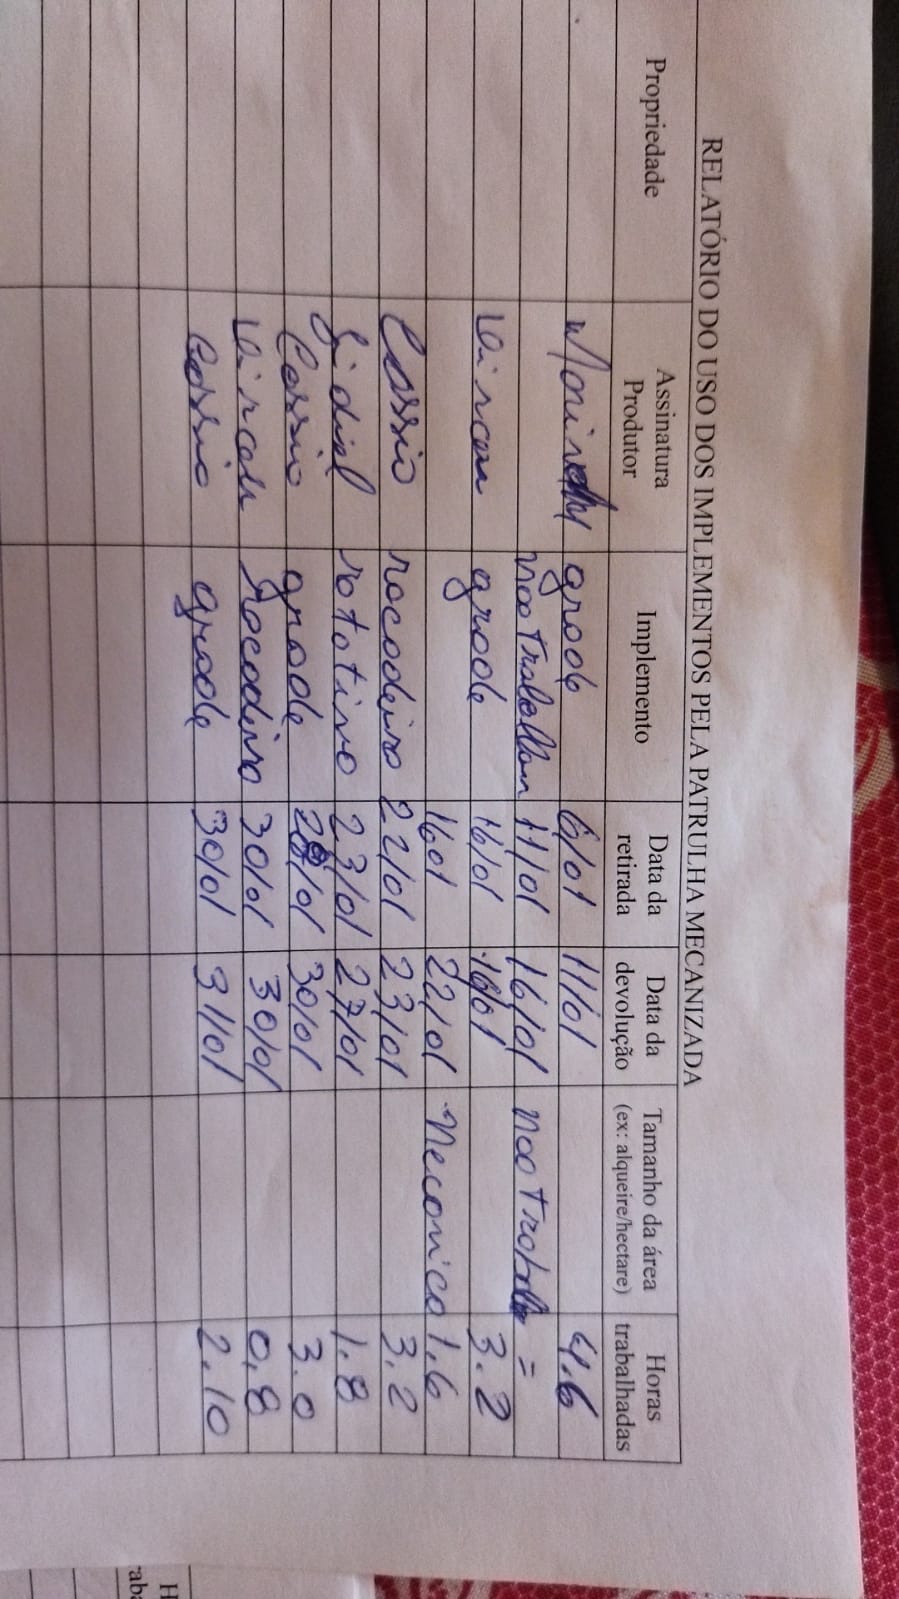 RELATÓRIO DO USO DOS IMPLEMENTOS PELA PATRULHA MECANIZADA
Propriedade Assinatura Produtor Implemento Data da retirada Data da devolução Tamanho da área (ex: alqueire/hectare) Horas trabalhadas
grode 6/01 11/01 4.6
noo 11/01 16/01 noo =
Virceu grode 16/01 16/01 3.2
16/01 22/01 meconico 1.6
Cossio rocodeiro 22/01 23/01 3.2
Sidial rototivo 23/01 27/01 1.8
Cossio grode 28/01 30/01 3.0
Virceu rocodeiro 30/01 30/01 0.8
Cossio grode 30/01 31/01 2.10
H
rab